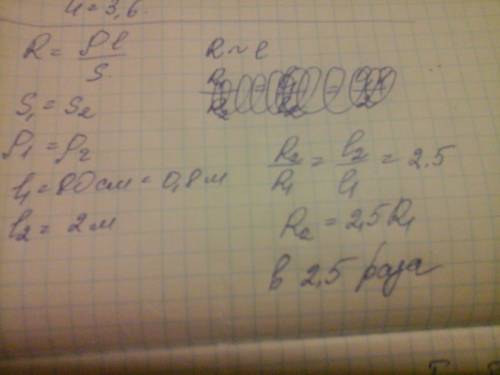 u = 3,6.
R = ρl/S
S₁ = S₂
ρ₁ = ρ₂
l₁ = 80 см = 0,8 м
l₂ = 2 м
R ~ l
R₂/R₁ = l₂/l₁ = 2.5
R₂ = 2,5 R₁
в 2,5 раза